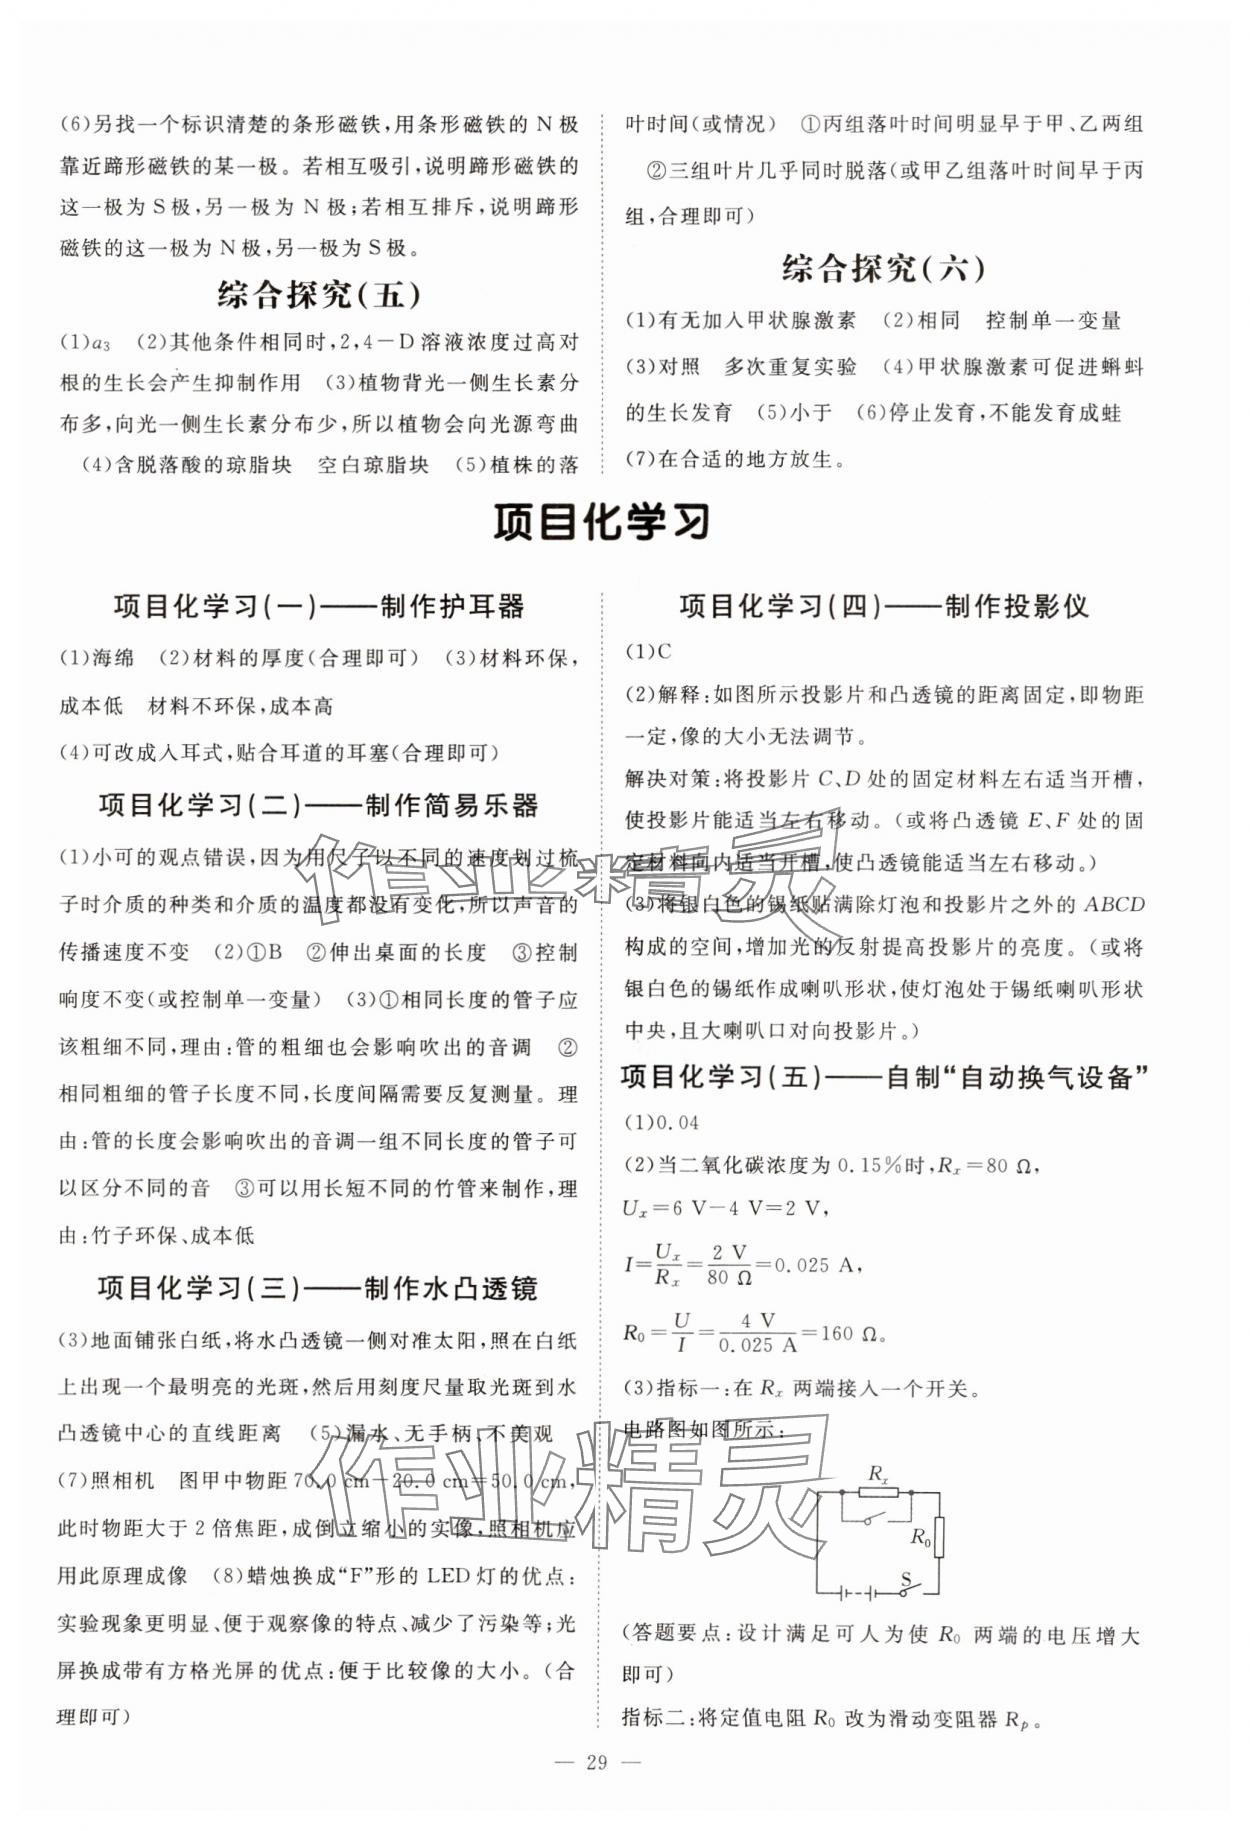 (6)另找一个标识清楚的条形磁铁,用条形磁铁的 N 极
靠近蹄形磁铁的某一极。若相互吸引,说明蹄形磁铁的
这一极为 S 极,另一极为 N 极;若相互排斥,说明蹄形
磁铁的这一极为 N 极,另一极为 S 极。
综合探究(五)
(1)a₃ (2)其他条件相同时,2,4-D 溶液浓度过高对
根的生长会产生抑制作用 (3)植物背光一侧生长素分
布多,向光一侧生长素分布少,所以植物会向光源弯曲
(4)含脱落酸的琼脂块 空白琼脂块 (5)植株的落
叶时间(或情况) ①丙组落叶时间明显早于甲、乙两组
②三组叶片几乎同时脱落(或甲乙组落叶时间早于丙
组,合理即可)
综合探究(六)
(1)有无加入甲状腺激素 (2)相同 控制单一变量
(3)对照 多次重复实验 (4)甲状腺激素可促进蝌蚪
的生长发育 (5)小于 (6)停止发育,不能发育成蛙
(7)在合适的地方放生。
项目化学习
项目化学习(一)——制作护耳器
(1)海绵 (2)材料的厚度(合理即可) (3)材料环保,
成本低 材料不环保,成本高
(4)可改成入耳式,贴合耳道的耳塞(合理即可)
项目化学习(二)——制作简易乐器
(1)小可的观点错误,因为用尺子以不同的速度划过梳
子时介质的种类和介质的温度都没有变化,所以声音的
传播速度不变 (2)①B ②伸出桌面的长度 ③控制
响度不变(或控制单一变量) (3)①相同长度的管子应
该粗细不同,理由:管的粗细也会影响吹出的音调 ②
相同粗细的管子长度不同,长度间隔需要反复测量。理
由:管的长度会影响吹出的音调一组不同长度的管子可
以区分不同的音 ③可以用长短不同的竹管来制作,理
由:竹子环保、成本低
项目化学习(三)——制作水凸透镜
(3)地面铺张白纸,将水凸透镜一侧对准太阳,照在白纸
上出现一个最明亮的光斑,然后用刻度尺量取光斑到水
凸透镜中心的直线距离 (5)漏水、无手柄、不美观
(7)照相机 图甲中物距 70.0 cm-20.0 cm=50.0 cm,
此时物距大于 2 倍焦距,成倒立缩小的实像,照相机应
用此原理成像 (8)蜡烛换成“F”形的 LED 灯的优点:
实验现象更明显、便于观察像的特点、减少了污染等;光
屏换成带有方格光屏的优点:便于比较像的大小。(合
理即可)
项目化学习(四)——制作投影仪
(1)C
(2)解释:如图所示投影片和凸透镜的距离固定,即物距
一定,像的大小无法调节。
解决对策:将投影片 C、D 处的固定材料左右适当开槽,
使投影片能适当左右移动。(或将凸透镜 E、F 处的固
定材料向内适当开槽,使凸透镜能适当左右移动。)
(3)将银白色的锡纸贴满除灯泡和投影片之外的 ABCD
构成的空间,增加光的反射提高投影片的亮度。(或将
银白色的锡纸作成喇叭形状,使灯泡处于锡纸喇叭形状
中央,且大喇叭口对向投影片。)
项目化学习(五)——自制“自动换气设备”
(1)0.04
(2)当二氧化碳浓度为 0.15%时,Rₓ=80 Ω,
Uₓ=6 V-4 V=2 V,
I=Uₓ/Rₓ=2 V/80 Ω=0.025 A,
R₀=U/I=4 V/0.025 A=160 Ω。
(3)指标一:在 Rₓ 两端接入一个开关。
电路图如图所示:
Rₓ
R₀
S
(答题要点:设计满足可人为使 R₀ 两端的电压增大
即可)
指标二:将定值电阻 R₀ 改为滑动变阻器 Rₚ。
— 29 —
作业精灵
作业精灵